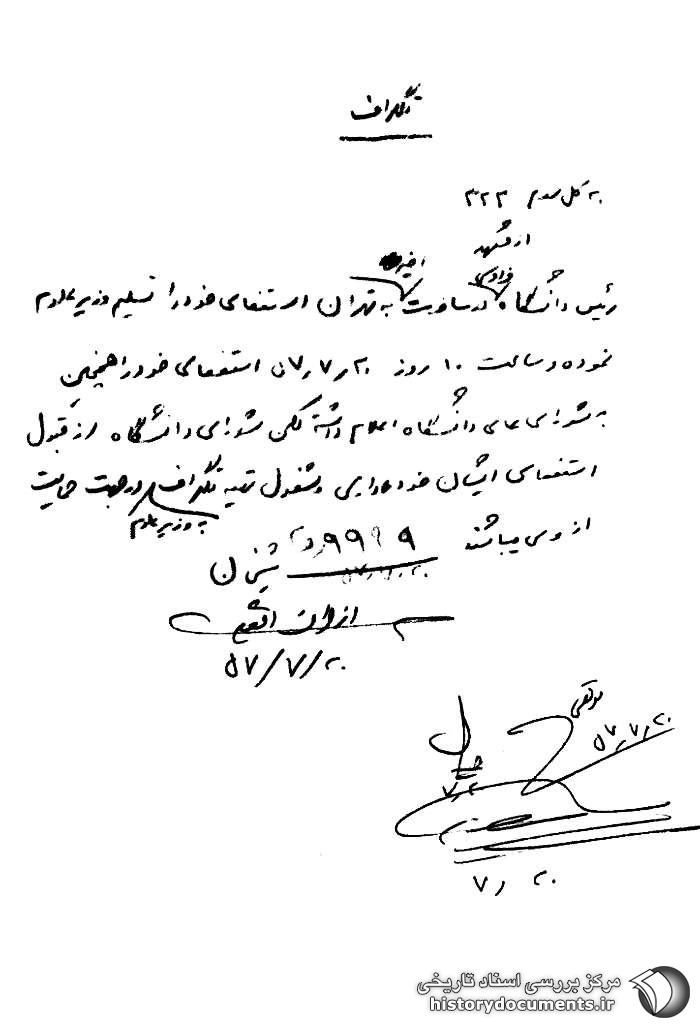 تلگراف
به کل سوم ۳۲۳
از مشهد
اخیر
فردوسی
رئیس دانشگاه در مسافرت به تهران استعفای خود را تسلیم وزیر علوم
نموده و ساعت ۱۰ روز ۵۷٫۷٫۲۰ استعفای خود را همچنین
به شورای عالی دانشگاه اعلام داشته لکن شورای دانشگاه از قبول
استعفای ایشان خودداری و مشغول تهیه تلگراف در جهت حمایت
به وزیر علوم
از وی میباشند
۹۹۹۹
۵۷/۷/۲۰
موثقی
۵۷٫۷٫۲۰
۷٫۲۰
۷٫۲۰
مرکز بررسی اسناد تاریخی
historydocuments.ir